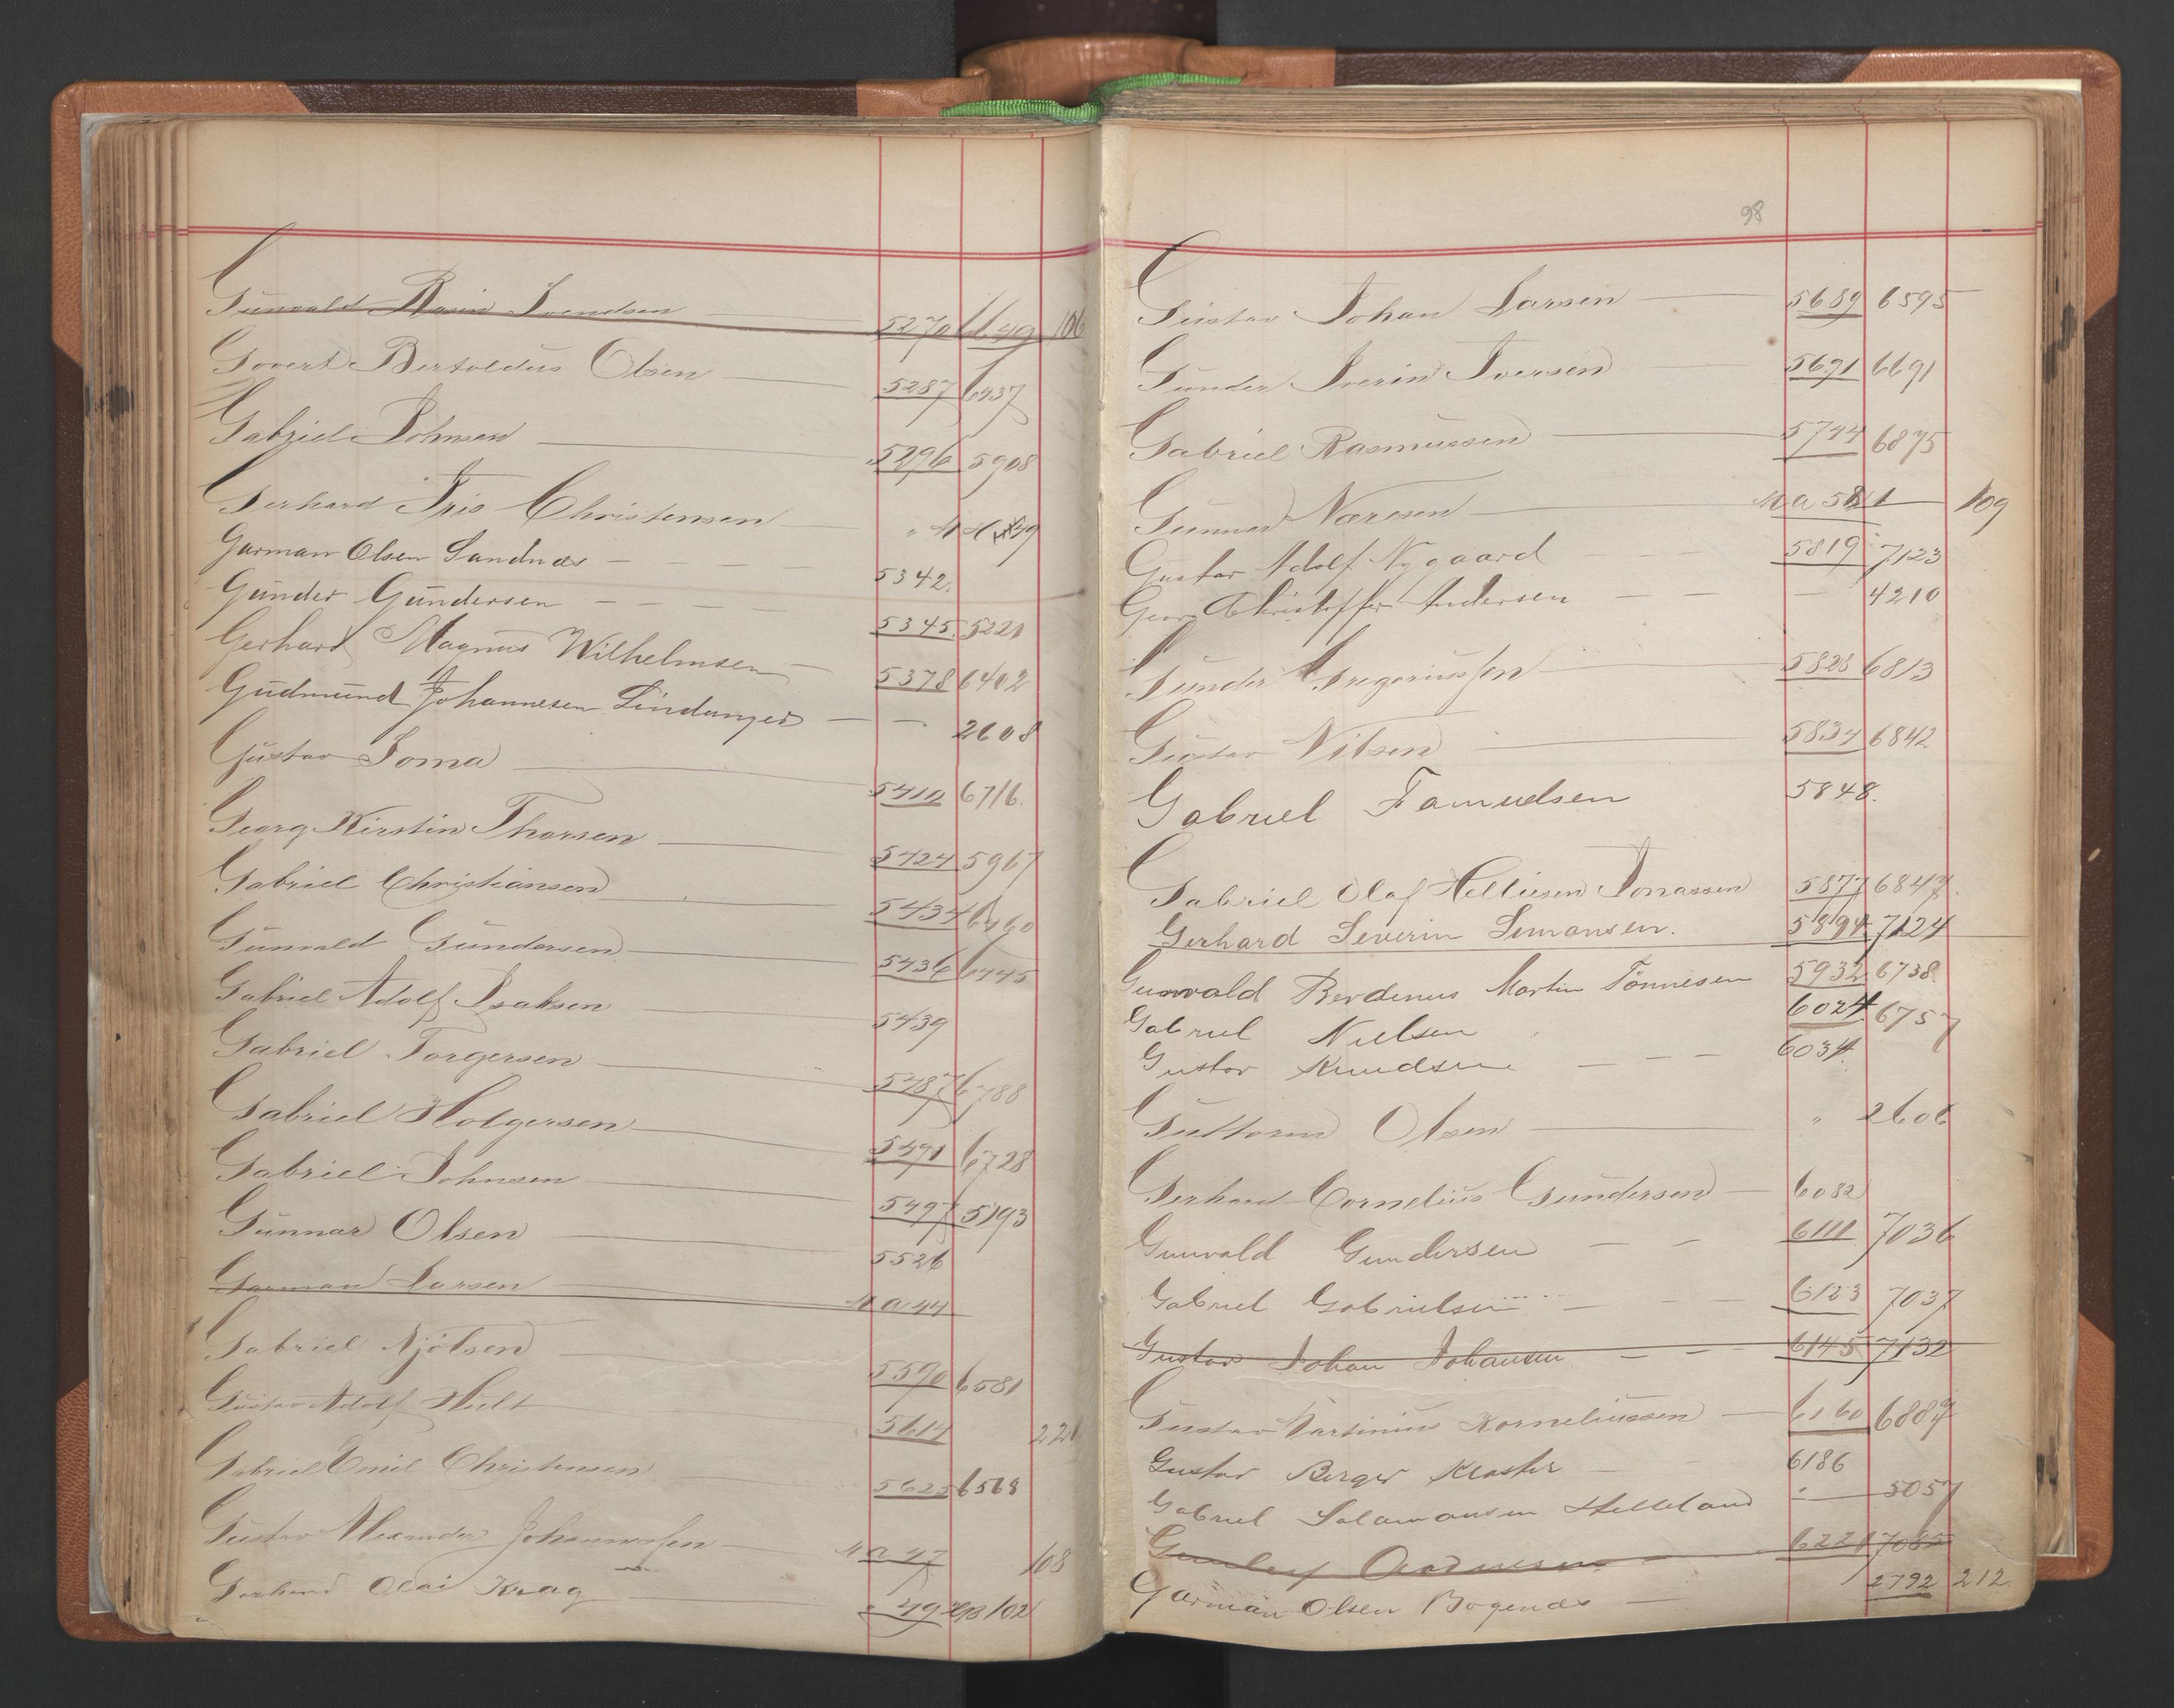 Gunvald Svendsen 5270 106
Govert Bertoldus Olsen 5287 6437
Gabriel Johnsen 5296 5908
Gerhard Friis Christensen
Garman Olsen Sandnæs 5342
Gunder Gundersen 5345 5221
Gerhard Magnus Wilhelmsen 5378 6402
Gudmund Johannesen Lindanger 2608
Gustav Soma 5410 6716
Georg Kirstin Thorsen 5424 5967
Gabriel Christiansen 5434 6460
Gunvald Gundersen 5436 6445
Gabriel Adolf Isaksen 5439
Gabriel Torgersen 5487 6788
Gabriel Holgersen 5491 6728
Gabriel Johnsen 5497 5193
Gunnar Olsen 5526
Garman Larsen Ma 44
Gabriel Njölsen 5590 6581
Gustav Adolf Hult 5614 221
Gabriel Emil Christensen 5625 6568
Gustav Alexander Johannessen Ma 47 108
Gerhard Olai Krag 49 102
98
Gustav Johan Larsen 5689 6595
Gunder Iversen 5691 6691
Gabriel Rasmussen 5744 6875
Gunnar Næresen Ma 109
Gustav Adolf Nygaard 5819 7123
Georg Christoffer Andersen 4210
Gunder Gregoriussen 5828 6813
Gustav Nilsen 5834 6842
Gabriel Famudsen 5848
Gabriel Olaf Helliesen Jonassen 5877 6847
Gerhard Severin Simonsen. 5894 7124
Gunvald Berdinus Martin Tönnesen 5932 6738
Gabriel Nielsen 6024 6757
Gustav Knudsen 6034
Guttorm Olsen " 2606
Gerhard Cornelius Gundersen 6082
Gunvald Gundersen 6111 7036
Gabriel Gabrielsen 6123 7037
Gustav Johan Johansen 6145 7132
Gustav Martinius Korneliussen 6160 6887
Gustav Berger Kloster 6186
Gabriel Salamonsen Helleland 5057
6221 7085
Garman Olsen Bogenæs 2792 212